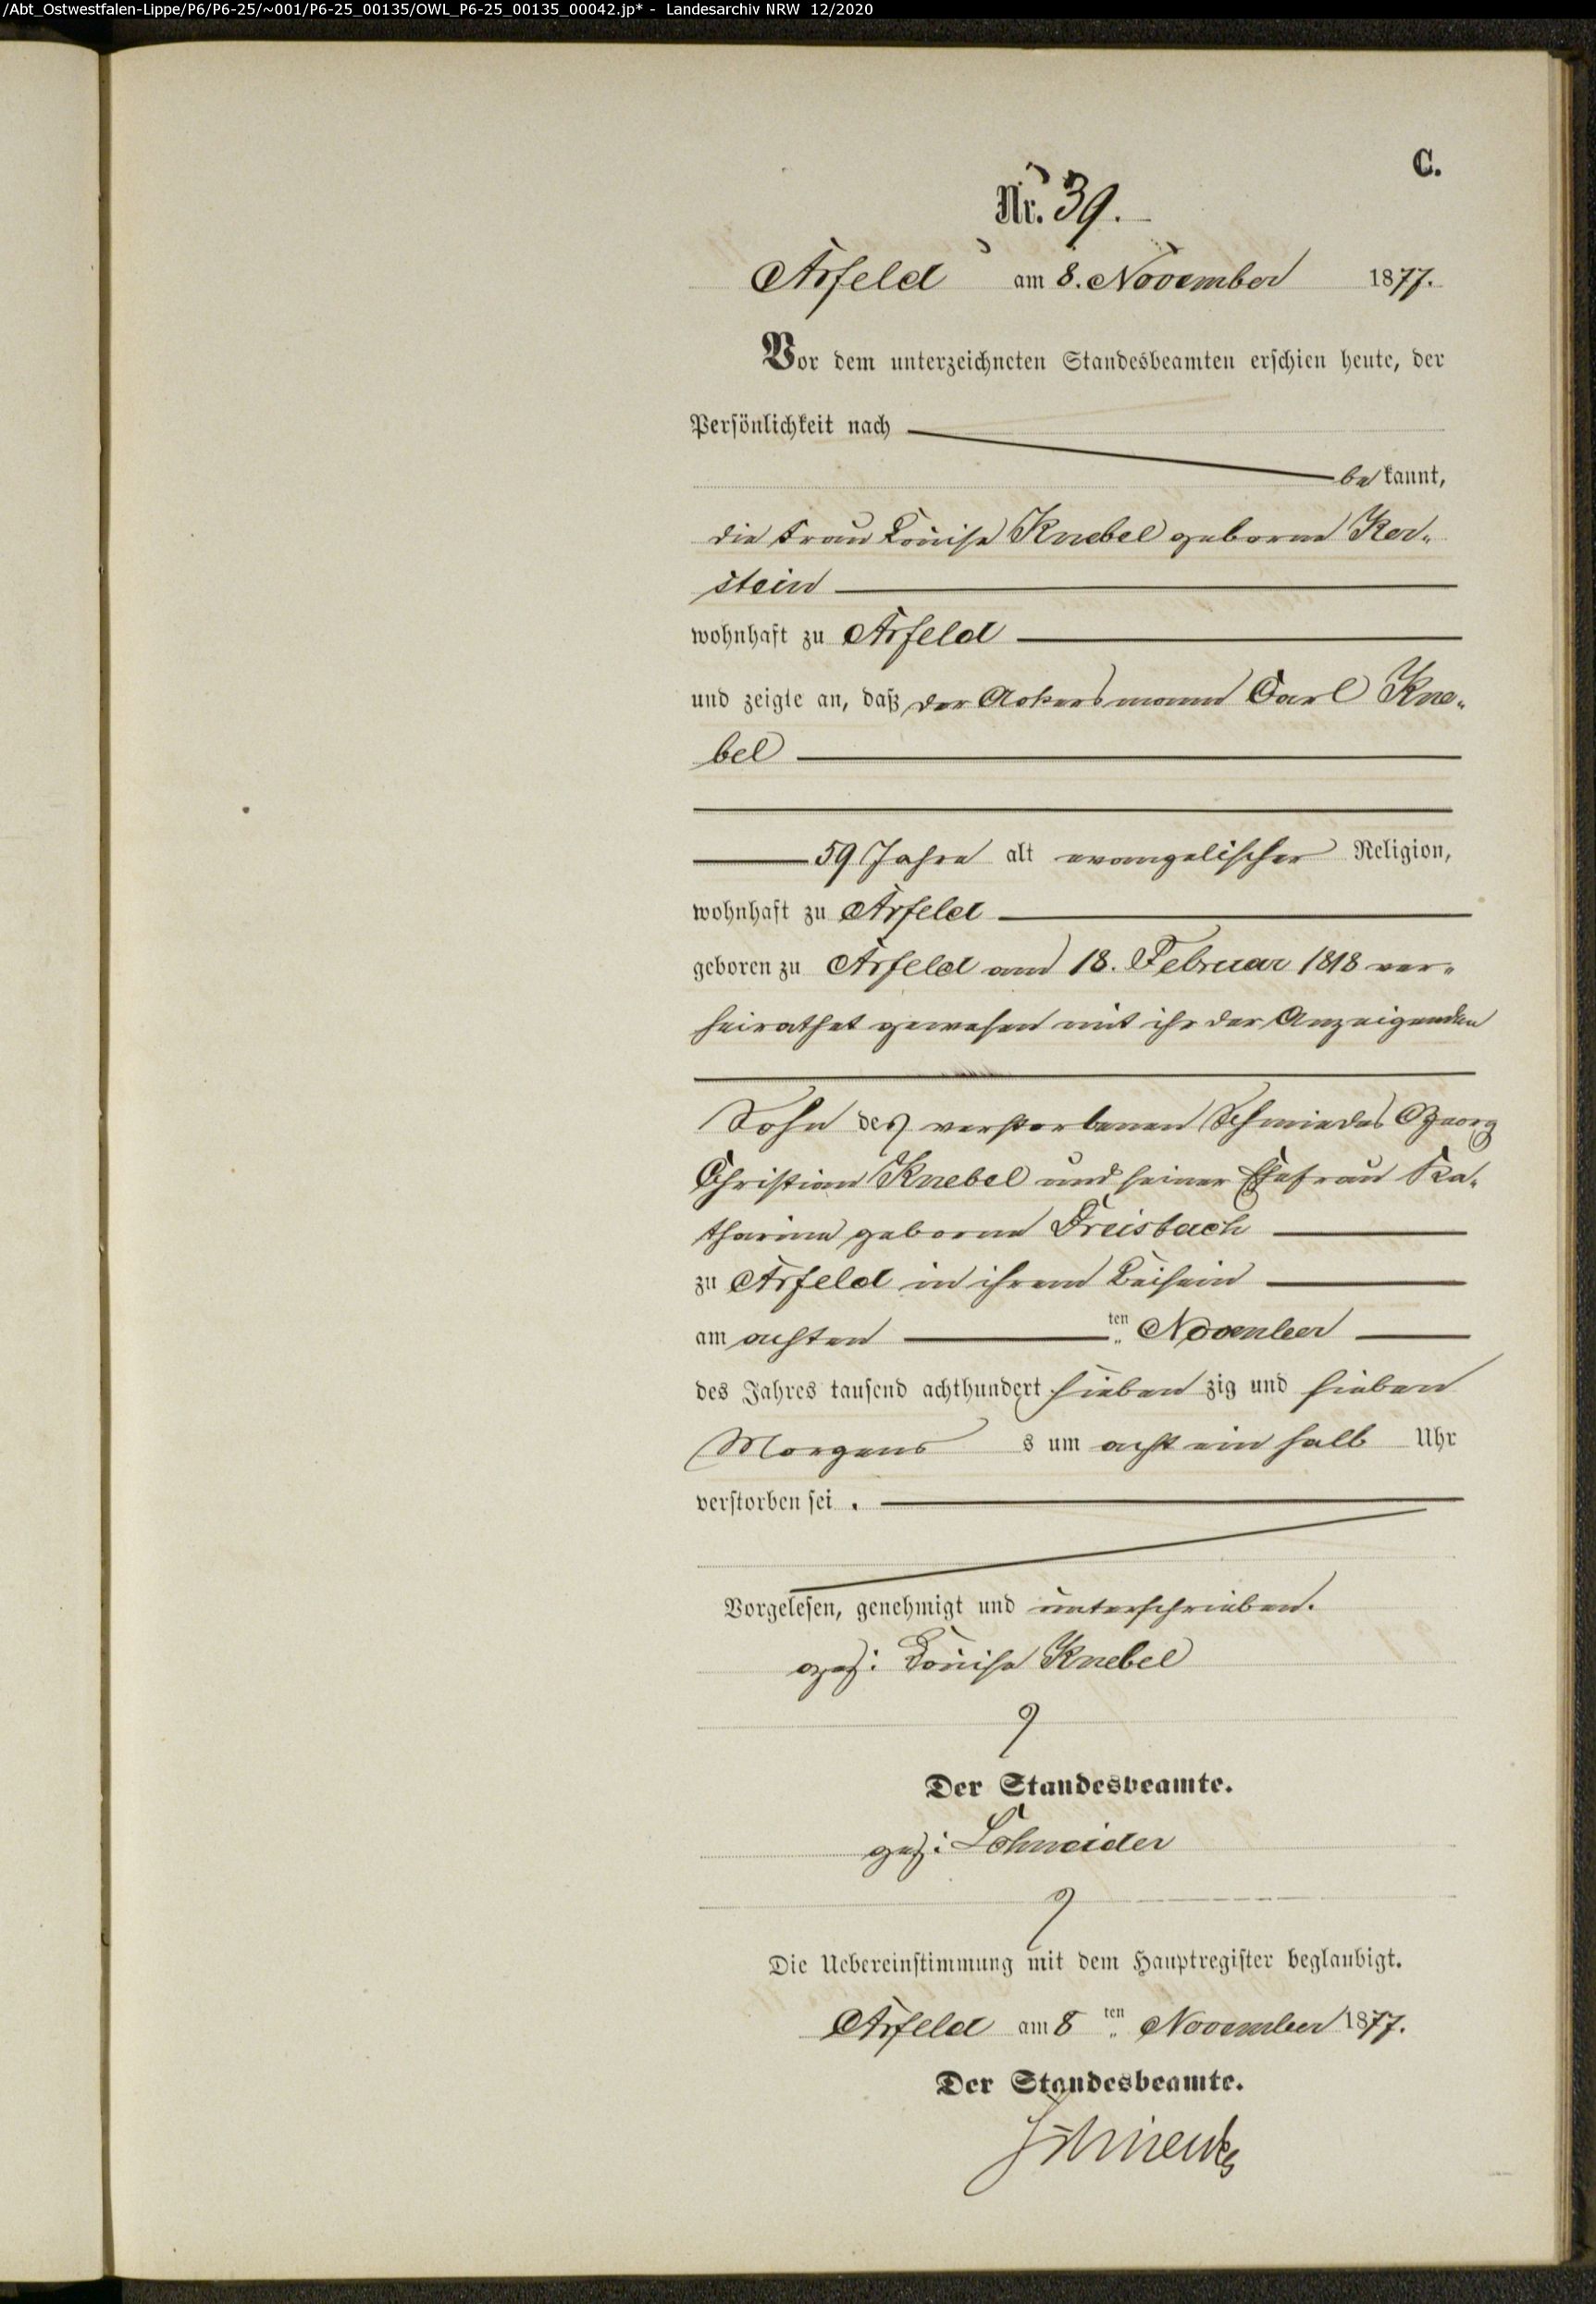 /Abt_Ostwestfalen-Lippe/P6/P6-25/~001/P6-25_00135/OWL_P6-25_00135_00042.jp* - Landesarchiv NRW 12/2020
C.
Nr. 39.
Arfeld am 8. November 1877.
Vor dem unterzeichneten Standesbeamten erschien heute, der
Persönlichkeit nach
bekannt,
die Frau Louise Knebel geborne Ker-
stein
wohnhaft zu Arfeld
und zeigte an, daß der Ackersmann Carl Kne-
bel
59 Jahre alt evangelischer Religion,
wohnhaft zu Arfeld
geboren zu Arfeld am 18. Februar 1818 ver-
heirathet gewesen mit ihr der Anzeigenden
Sohn des verstorbenen Schmiedes Georg
Christian Knebel und seiner Ehefrau Ka-
tharina geborne Dreisbach
zu Arfeld in ihrem Beisein
am achten ten November
des Jahres tausend achthundert sieben zig und sieben
Morgens s um acht ein halb Uhr
verstorben sei.
Vorgelesen, genehmigt und unterschrieben.
gez: Louise Knebel
Der Standesbeamte.
gez: Schneider
Die Uebereinstimmung mit dem Hauptregister beglaubigt.
Arfeld am 8 ten November 1877.
Der Standesbeamte.
Schneider